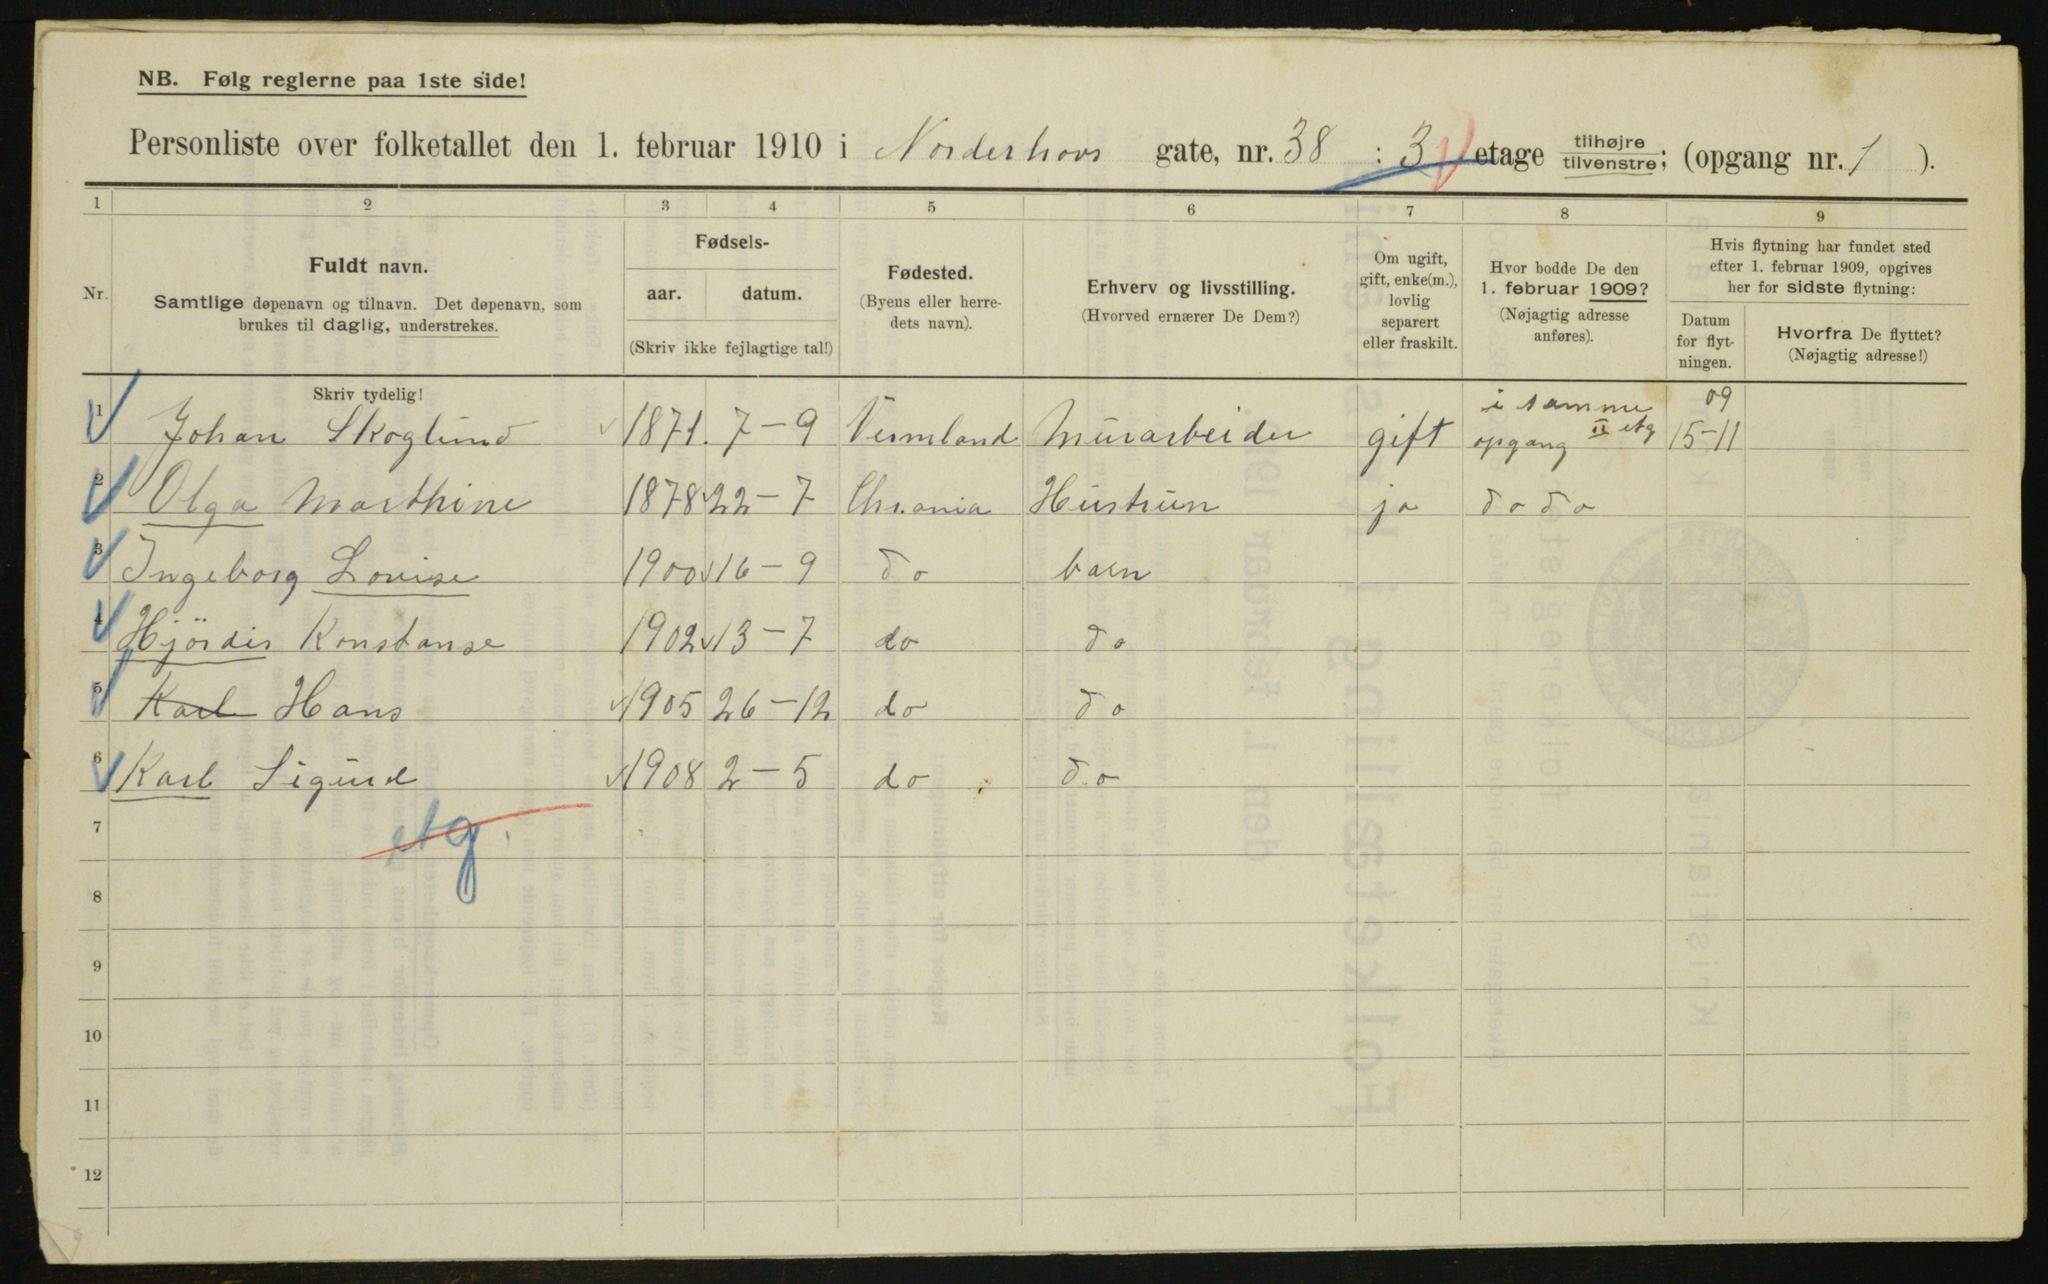 NB. Følg reglerne paa 1ste side!
Personliste over folketallet den 1. februar 1910 i Norderhovs gate, nr. 38 : 3 etage tilhøjre tilvenstre; (opgang nr. 1 ).
1 2 3 4 5 6 7 8 9
Nr.
Fuldt navn.
Samtlige døpenavn og tilnavn. Det døpenavn, som
brukes til daglig, understrekes.
Fødsels-
aar. datum.
(Skriv ikke fejlagtige tal!)
Fødested.
(Byens eller herre-
dets navn).
Erhverv og livsstilling.
(Hvorved ernærer De Dem?)
Om ugift,
gift, enke(m.),
lovlig
separert
eller fraskilt.
Hvor bodde De den
1. februar 1909?
(Nøjagtig adresse
anføres).
Hvis flytning har fundet sted
efter 1. februar 1909, opgives
her for sidste flytning:
Datum
for flyt-
ningen.
Hvorfra De flyttet?
(Nøjagtig adresse!)
Skriv tydelig!
1 Johan Skoglund 1871. 7-9 Vermland Murarbeider gift i samme opgang II etg 15-11 09
2 Olga Marthine 1878 22-7 Chr.ania Hustrun ja do do
3 Ingeborg Lovise 1900 16-9 do barn
4 Hjördis Konstanse 1902 13-7 do do
5 Karl Hans 1905 26-12 do do
6 Karl Sigurd 1908 2-5 do do
7
8
9
10
11
12